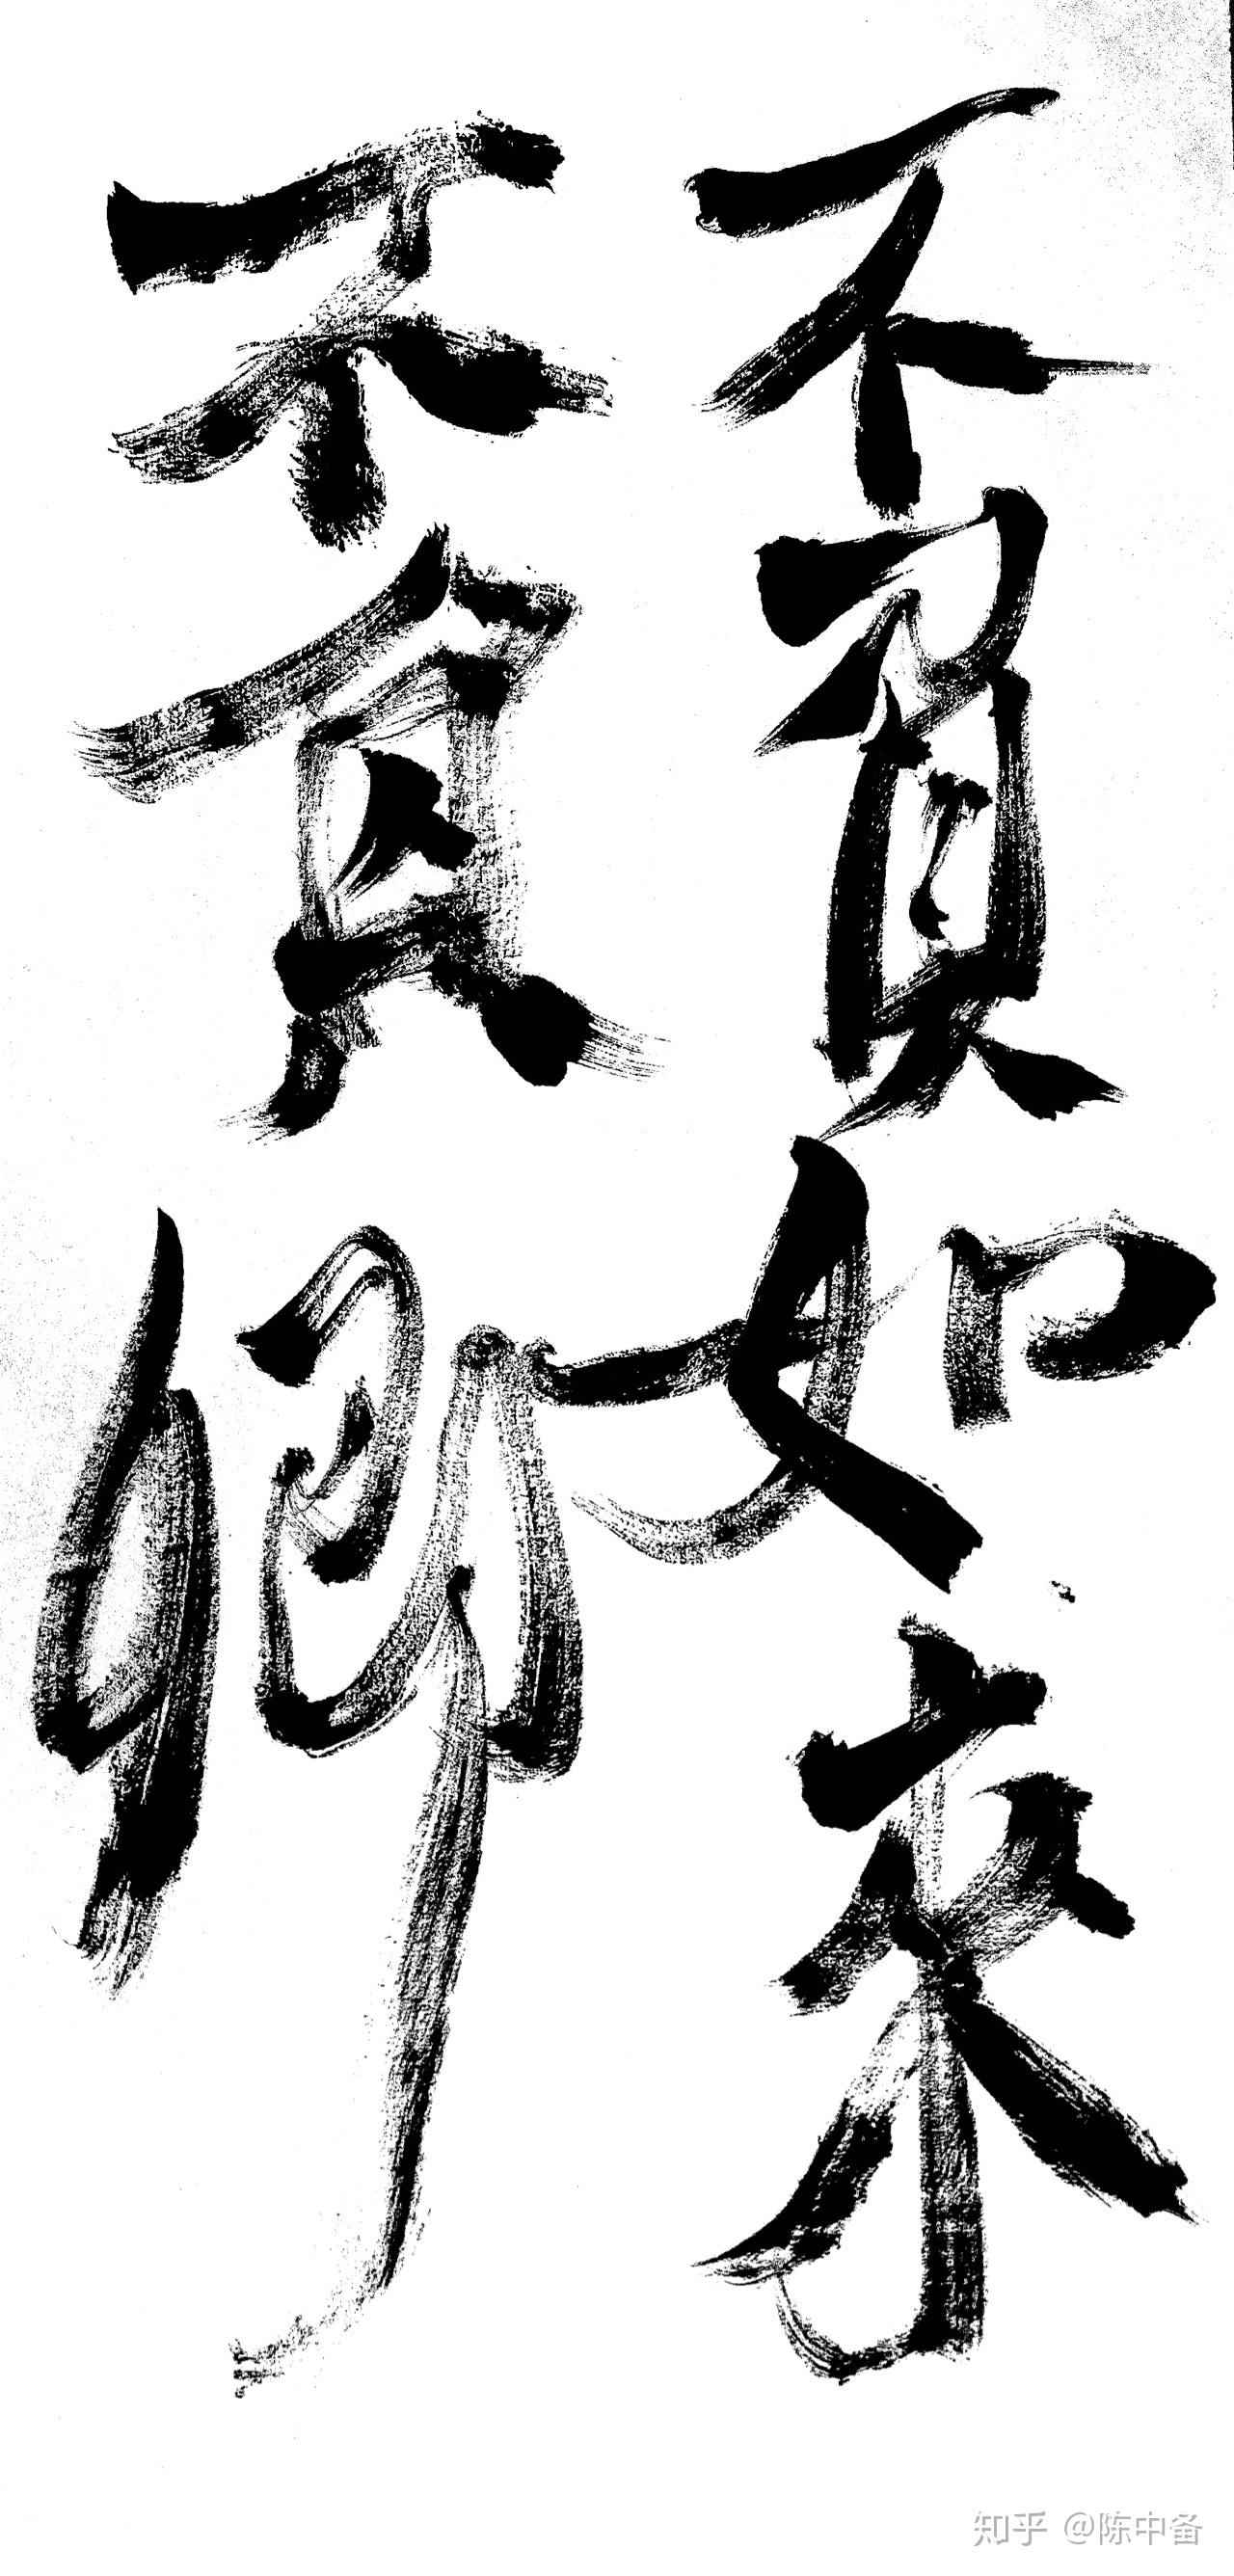 不负如来
不负卿
知乎 @陈中备